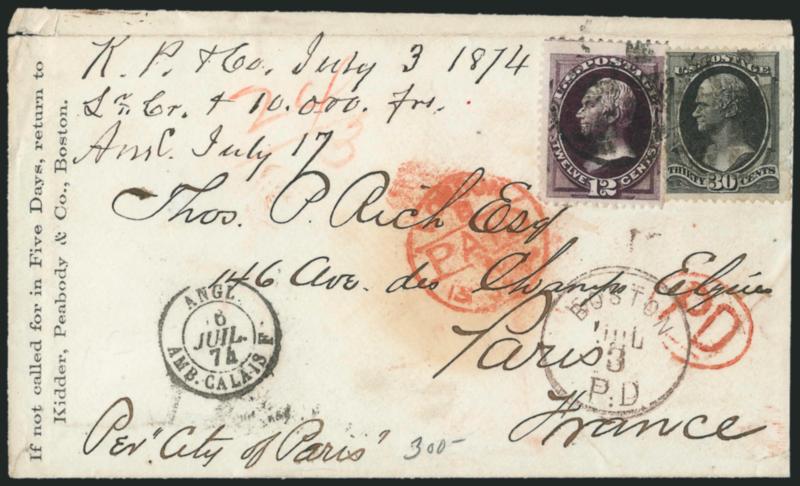 K. P. & Co. July 3 1874
Lr. Cr. & 10.000. Frs.
Ansd. July 17
U.S. POSTAGE
TWELVE 12 CENTS
U.S. POSTAGE
THIRTY 30 CENTS
Thos. P. Rich Esq
146 Ave. des Champs Elysées
Paris
France
If not called for in Five Days, return to
Kidder, Peabody & Co., Boston.
ANGL.
6
JUIL.
74
AMB. CALAIS F
BOSTON
JUL
3
P.D
PD
Per "City of Paris"
300-